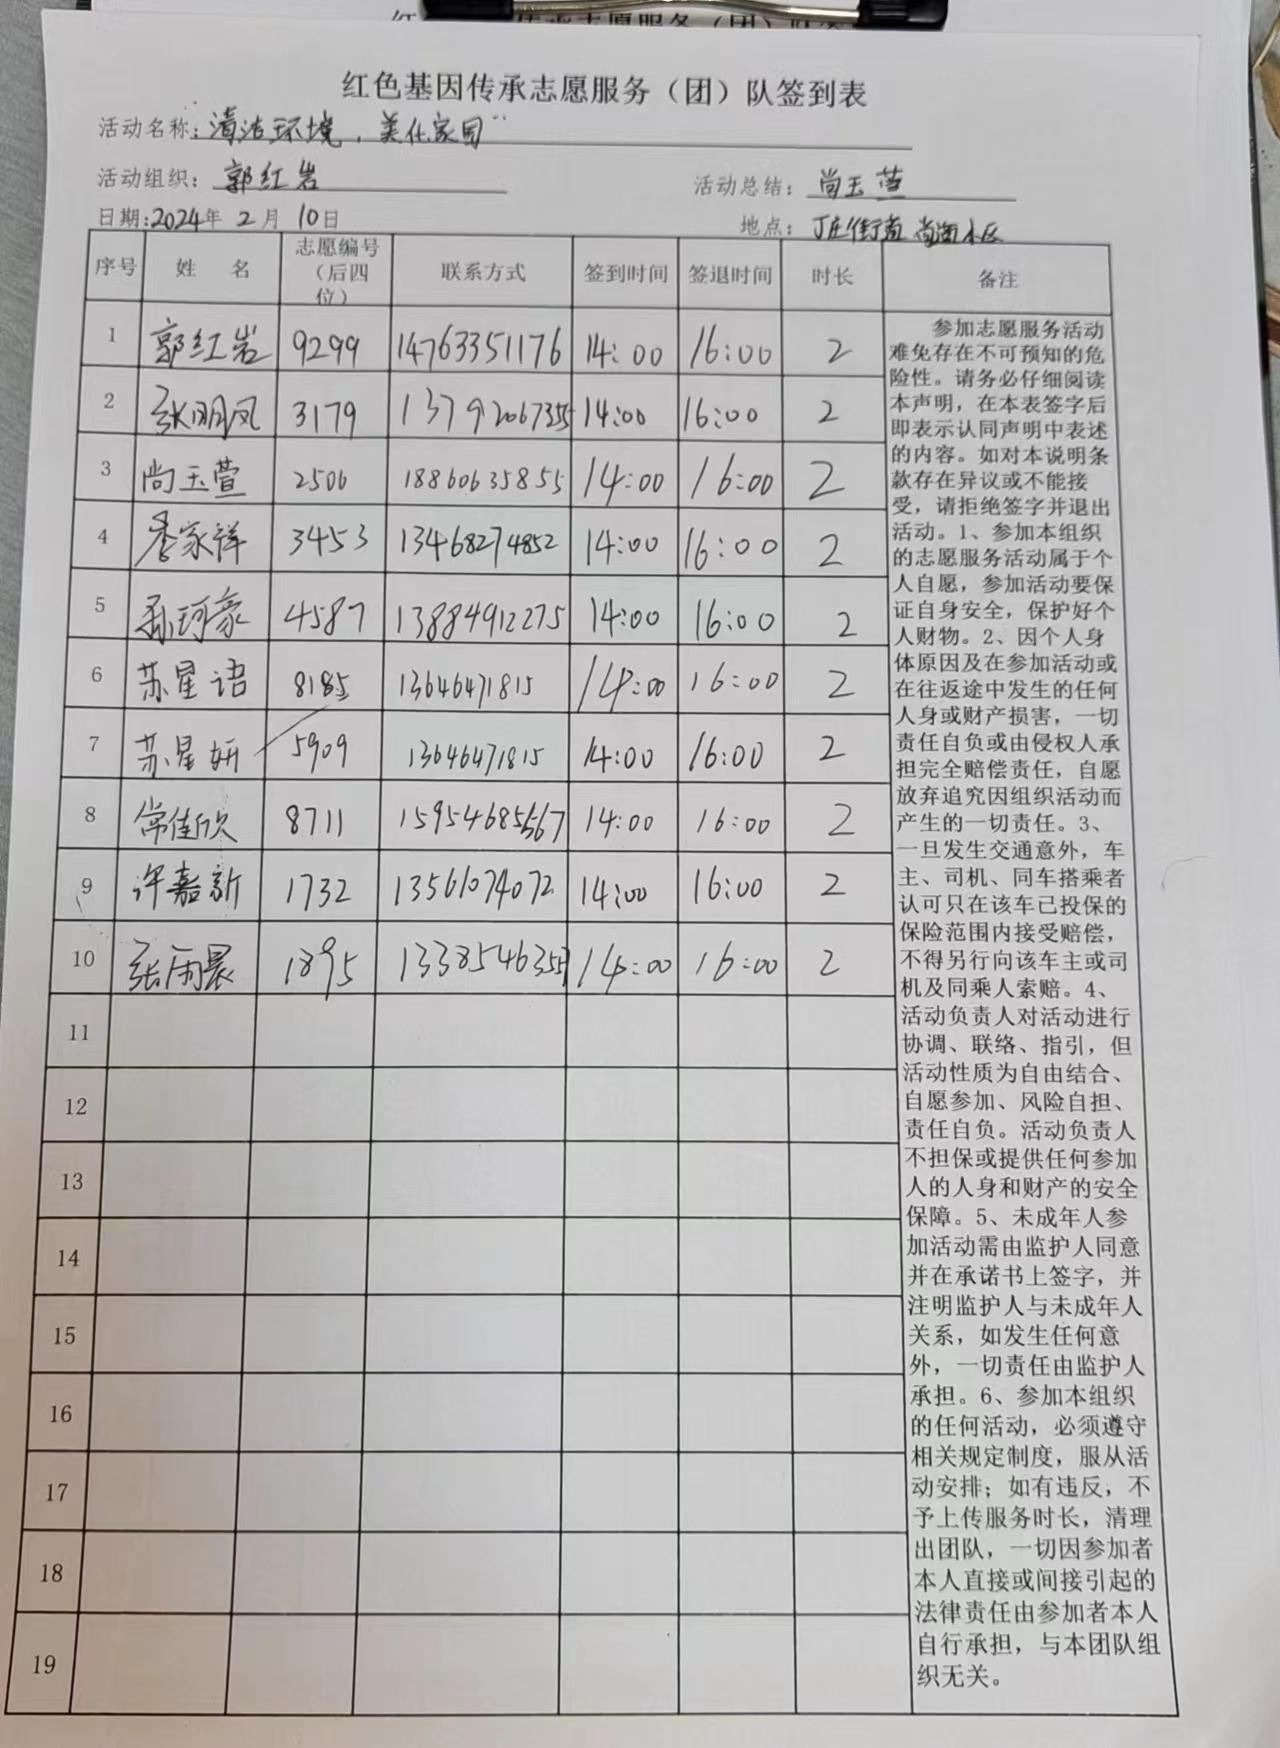 红色基因传承志愿服务（团）队签到表
活动名称：“清洁环境，美化家园”
活动组织：郭红岩 活动总结：尚玉萱
日期：2024年 2月 10日 地点：丁庄街道 尚海小区
序号 姓 名 志愿编号（后四位） 联系方式 签到时间 签退时间 时长 备注
1 郭红岩 9299 14763351176 14:00 16:00 2
2 张明凤 3179 13792067355 14:00 16:00 2
3 尚玉萱 2506 18860635855 14:00 16:00 2
4 季家祥 3453 13468274852 14:00 16:00 2
5 孙珂豪 4587 13884912275 14:00 16:00 2
6 苏星语 8185 13646471815 14:00 16:00 2
7 苏星妍 5909 13646471815 14:00 16:00 2
8 常佳欣 8711 15954685567 14:00 16:00 2
9 许嘉新 1732 13561074072 14:00 16:00 2
10 张雨晨 1895 14:00 16:00 2
11
12
13
14
15
16
17
18
19
参加志愿服务活动
难免存在不可预知的危
险性。请务必仔细阅读
本声明，在本表签字后
即表示认同声明中表述
的内容。如对本说明条
款存在异议或不能接
受，请拒绝签字并退出
活动。1、参加本组织
的志愿服务活动属于个
人自愿，参加活动要保
证自身安全，保护好个
人财物。2、因个人身
体原因及在参加活动或
在往返途中发生的任何
人身或财产损害，一切
责任自负或由侵权人承
担完全赔偿责任，自愿
放弃追究因组织活动而
产生的一切责任。3、
一旦发生交通意外，车
主、司机、同车搭乘者
认可只在该车已投保的
保险范围内接受赔偿，
不得另行向该车主或司
机及同乘人索赔。4、
活动负责人对活动进行
协调、联络、指引，但
活动性质为自由结合、
自愿参加、风险自担、
责任自负。活动负责人
不担保或提供任何参加
人的人身和财产的安全
保障。5、未成年人参
加活动需由监护人同意
并在承诺书上签字，并
注明监护人与未成年人
关系，如发生任何意
外，一切责任由监护人
承担。6、参加本组织
的任何活动，必须遵守
相关规定制度，服从活
动安排；如有违反，不
予上传服务时长，清理
出团队，一切因参加者
本人直接或间接引起的
法律责任由参加者本人
自行承担，与本团队组
织无关。